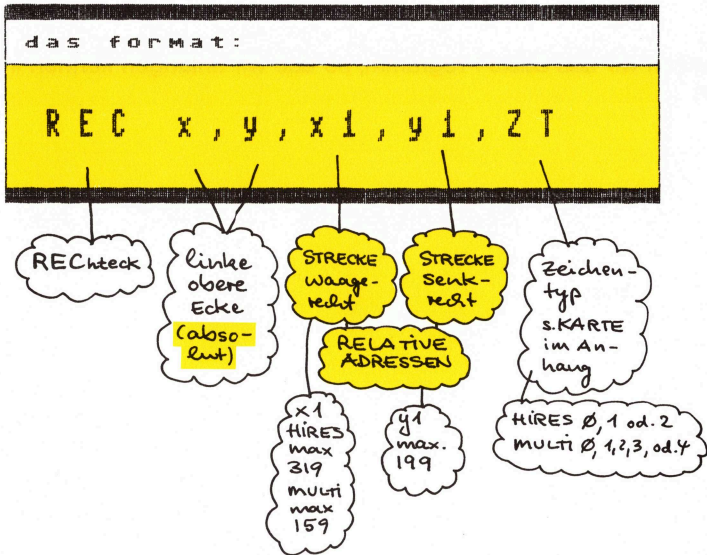 das format:
REC x,y,x1,y1,ZT
REChteck
linke
obere
Ecke
(abso-
lut)
STRECKE
waage-
recht
STRECKE
senk-
recht
RELATIVE
ADRESSEN
Zeichen-
typ
s.KARTE
im An-
hang
x1
HIRES
max
319
MULTI
max
159
y1
max.
199
HIRES Ø, 1 od. 2
MULTI Ø, 1,2,3, od.4